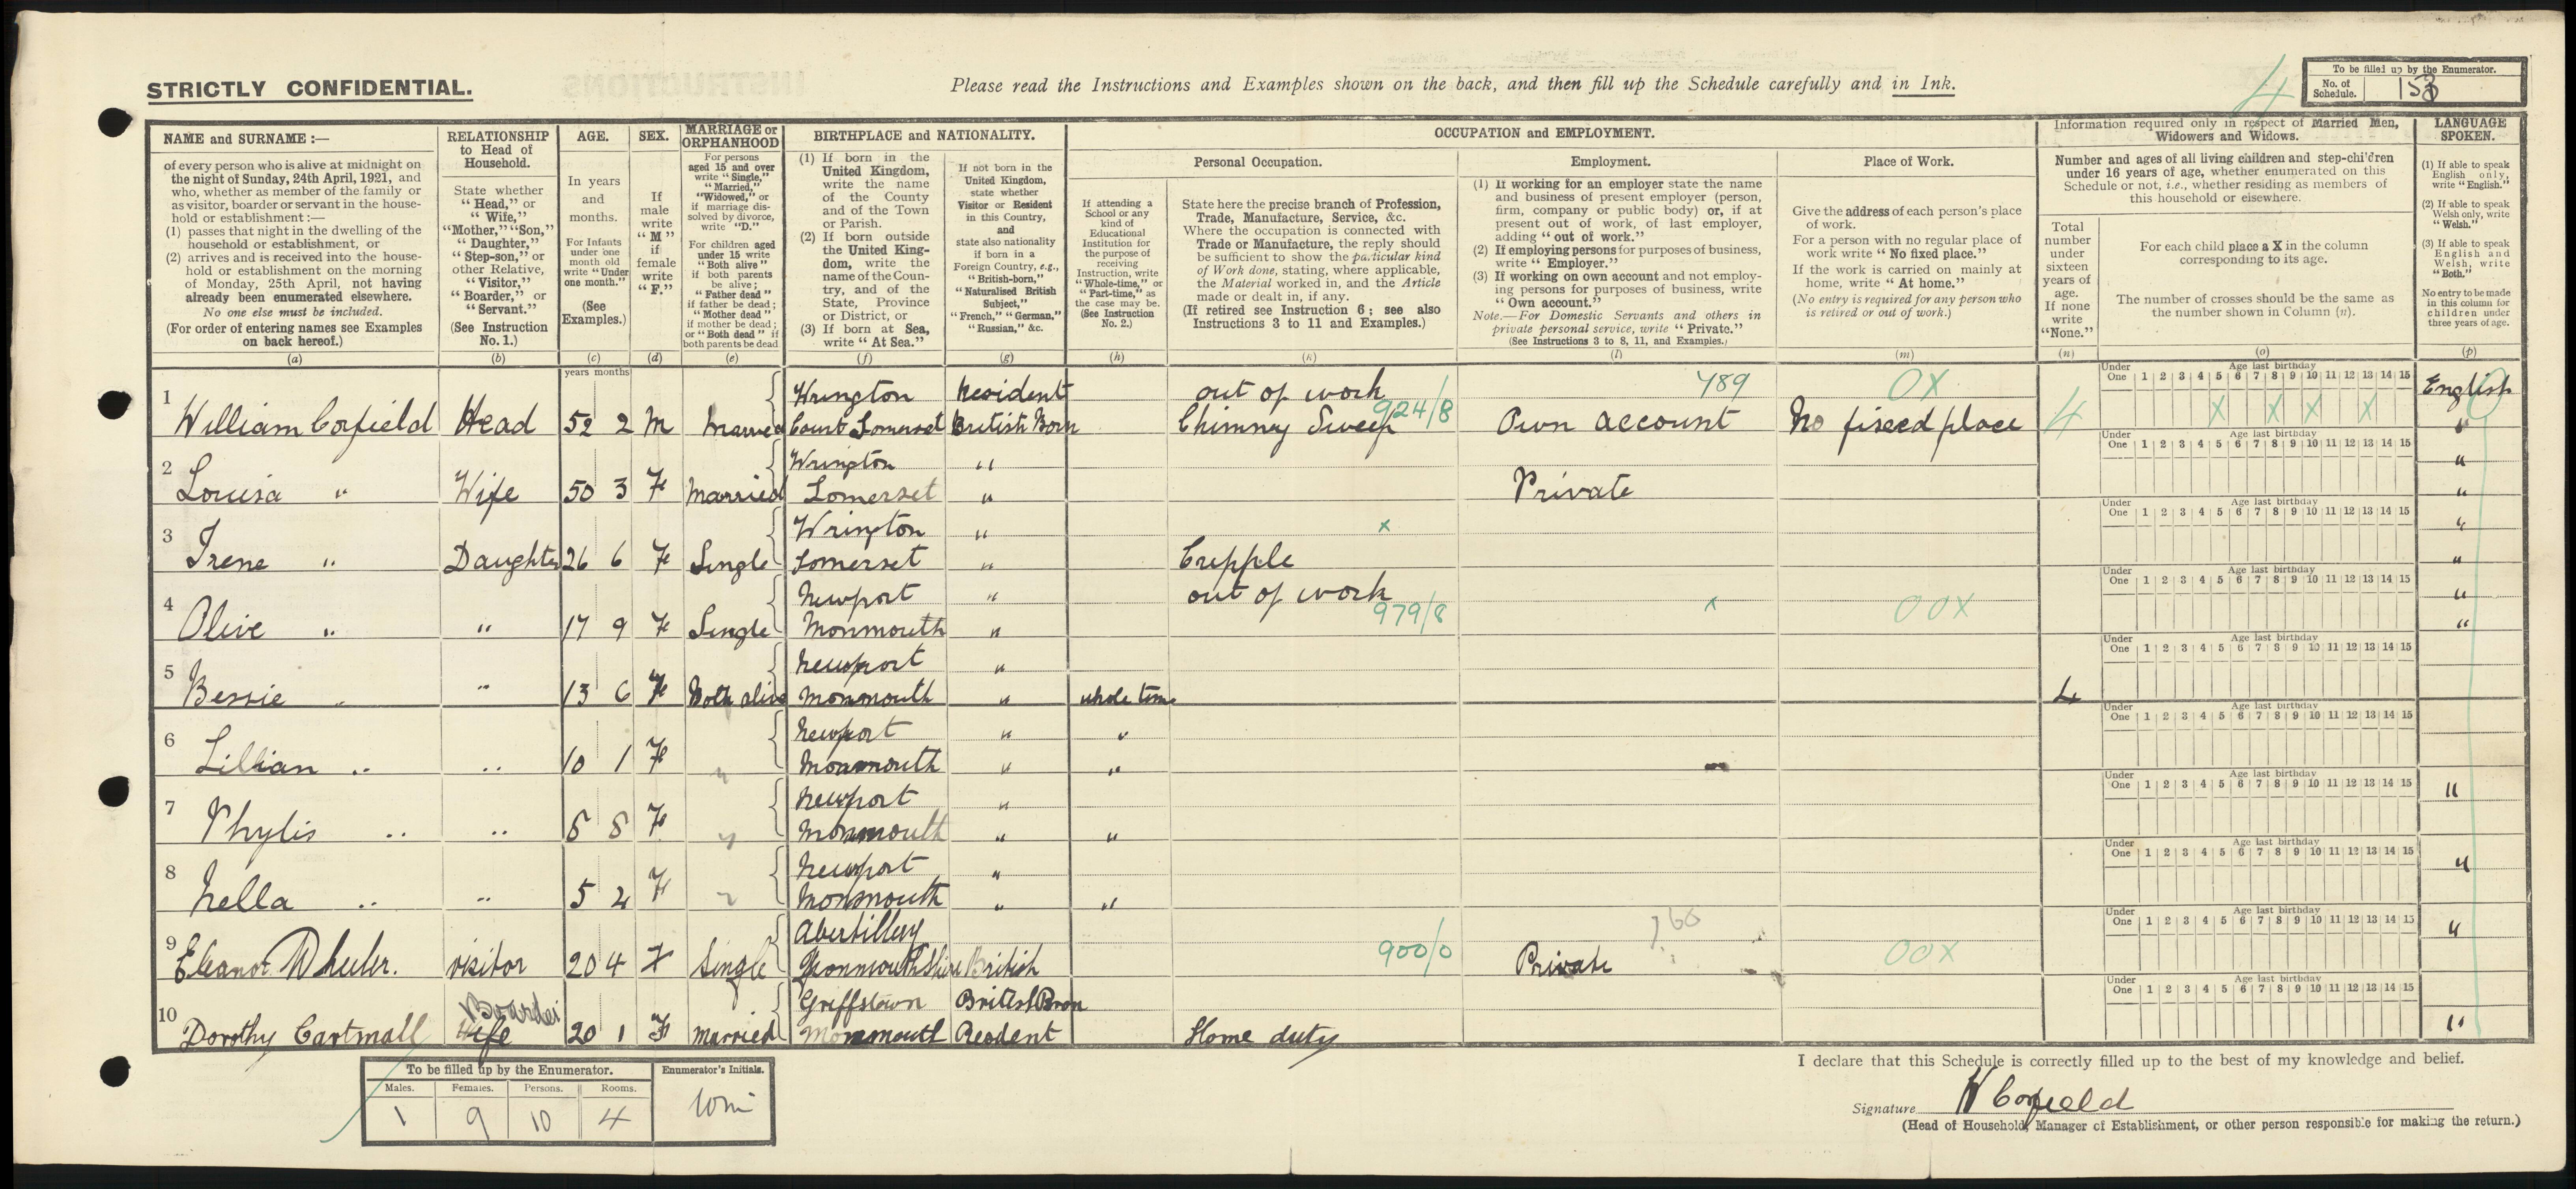 STRICTLY CONFIDENTIAL.
Please read the Instructions and Examples shown on the back, and then fill up the Schedule carefully and in Ink.
To be filled up by the Enumerator.
No. of Schedule.
NAME and SURNAME :—
of every person who is alive at midnight on
the night of Sunday, 24th April, 1921, and
who, whether as member of the family or
as visitor, boarder or servant in the house-
hold or establishment :—
(1) passes that night in the dwelling of the
household or establishment, or
(2) arrives and is received into the house-
hold or establishment on the morning
of Monday, 25th April, not having
already been enumerated elsewhere.
No one else must be included.
(For order of entering names see Examples
on back hereof.)
(a)
RELATIONSHIP
to Head of
Household.
State whether
"Head," or
"Wife,"
"Mother," "Son,"
"Daughter,"
"Step-son," or
other Relative,
"Visitor,"
"Boarder," or
"Servant."
(See Instruction
No. 1.)
(b)
AGE.
In years
and
months.
For Infants
under one
month old
write "Under
one month."
(See
Examples.)
(c)
SEX.
If
male
write
"M"
if
female
write
"F."
(d)
MARRIAGE or
ORPHANHOOD
For persons
aged 15 and over
write "Single,"
"Married,"
"Widowed," or
if marriage dis-
solved by divorce,
write "D."
For children aged
under 15 write
"Both alive"
if both parents
be alive;
"Father dead"
if father be dead;
"Mother dead"
if mother be dead;
or "Both dead" if
both parents be dead
(e)
BIRTHPLACE and NATIONALITY.
(1) If born in the
United Kingdom,
write the name
of the County
and of the Town
or Parish.
(2) If born outside
the United King-
dom, write the
name of the Coun-
try, and of the
State, Province
or District, or
(3) If born at Sea,
write "At Sea."
(f)
If not born in the
United Kingdom,
state whether
Visitor or Resident
in this Country,
and
state also nationality
if born in a
Foreign Country, e.g.,
"British-born,"
"Naturalised British
Subject,"
"French," "German,"
"Russian," &c.
(g)
OCCUPATION and EMPLOYMENT.
Personal Occupation.
If attending a
School or any
kind of
Educational
Institution for
the purpose of
receiving
Instruction, write
"Whole-time," or
"Part-time," as
the case may be.
(See Instruction
No. 2.)
(h)
State here the precise branch of Profession,
Trade, Manufacture, Service, &c.
Where the occupation is connected with
Trade or Manufacture, the reply should
be sufficient to show the particular kind
of Work done, stating, where applicable,
the Material worked in, and the Article
made or dealt in, if any.
(If retired see Instruction 6; see also
Instructions 3 to 11 and Examples.)
(k)
Employment.
(1) If working for an employer state the name
and business of present employer (person,
firm, company or public body) or, if at
present out of work, of last employer,
adding "out of work."
(2) If employing persons for purposes of business,
write "Employer."
(3) If working on own account and not employ-
ing persons for purposes of business, write
"Own account."
Note.—For Domestic Servants and others in
private personal service, write "Private."
(See Instructions 3 to 8, 11, and Examples.)
(l)
Place of Work.
Give the address of each person's place
of work.
For a person with no regular place of
work write "No fixed place."
If the work is carried on mainly at
home, write "At home."
(No entry is required for any person who
is retired or out of work.)
(m)
Information required only in respect of Married Men,
Widowers and Widows.
Number and ages of all living children and step-children
under 16 years of age, whether enumerated on this
Schedule or not, i.e., whether residing as members of
this household or elsewhere.
Total
number
under
sixteen
years of
age.
If none
write
"None."
(n)
For each child place a X in the column
corresponding to its age.
The number of crosses should be the same as
the number shown in Column (n).
(o)
LANGUAGE
SPOKEN.
(1) If able to speak
English only,
write "English."
(2) If able to speak
Welsh only, write
"Welsh."
(3) If able to speak
English and
Welsh, write
"Both."
No entry to be made
in this column for
children under
three years of age.
(p)
years months
Under One 1 2 3 4 5 6 7 8 9 10 11 12 13 14 15
Age last birthday
1 William Corfield Head 52 2 M Married Wrington Count Somerset Resident British Born out of work Chimney Sweep 924/8 789 Own account OX No fixed place 4 X X X X English "
2 Louisa " Wife 50 3 F Married Wrington Somerset " " Private " "
3 Irene " Daughter 26 6 F Single Wrington Somerset " " x Cripple " "
4 Olive " " 17 9 F Single Newport Monmouth " " out of work 979/8 x OOX " "
5 Bessie " " 13 6 F Both alive Newport Monmouth " " whole time 4
6 Lillian " " 10 1 F " Newport Monmouth " " " "
7 Phylis " " 8 8 F " Newport Monmouth " " " "
8 Nella " " 5 2 F " Newport Monmouth " " " "
9 Eleanor Wheeler. visitor 20 4 F Single Abertillery Monmouthshire British 900/0 760 Private OOX "
10 Dorothy Cartmall Boarder Wife 20 1 F Married Griffstown Monmouth British Bron Resdent Home duty "
To be filled up by the Enumerator.
Males. Females. Persons. Rooms.
1 9 10 4
Enumerator's Initials.
I declare that this Schedule is correctly filled up to the best of my knowledge and belief.
Signature W Corfield
(Head of Household, Manager of Establishment, or other person responsible for making the return.)